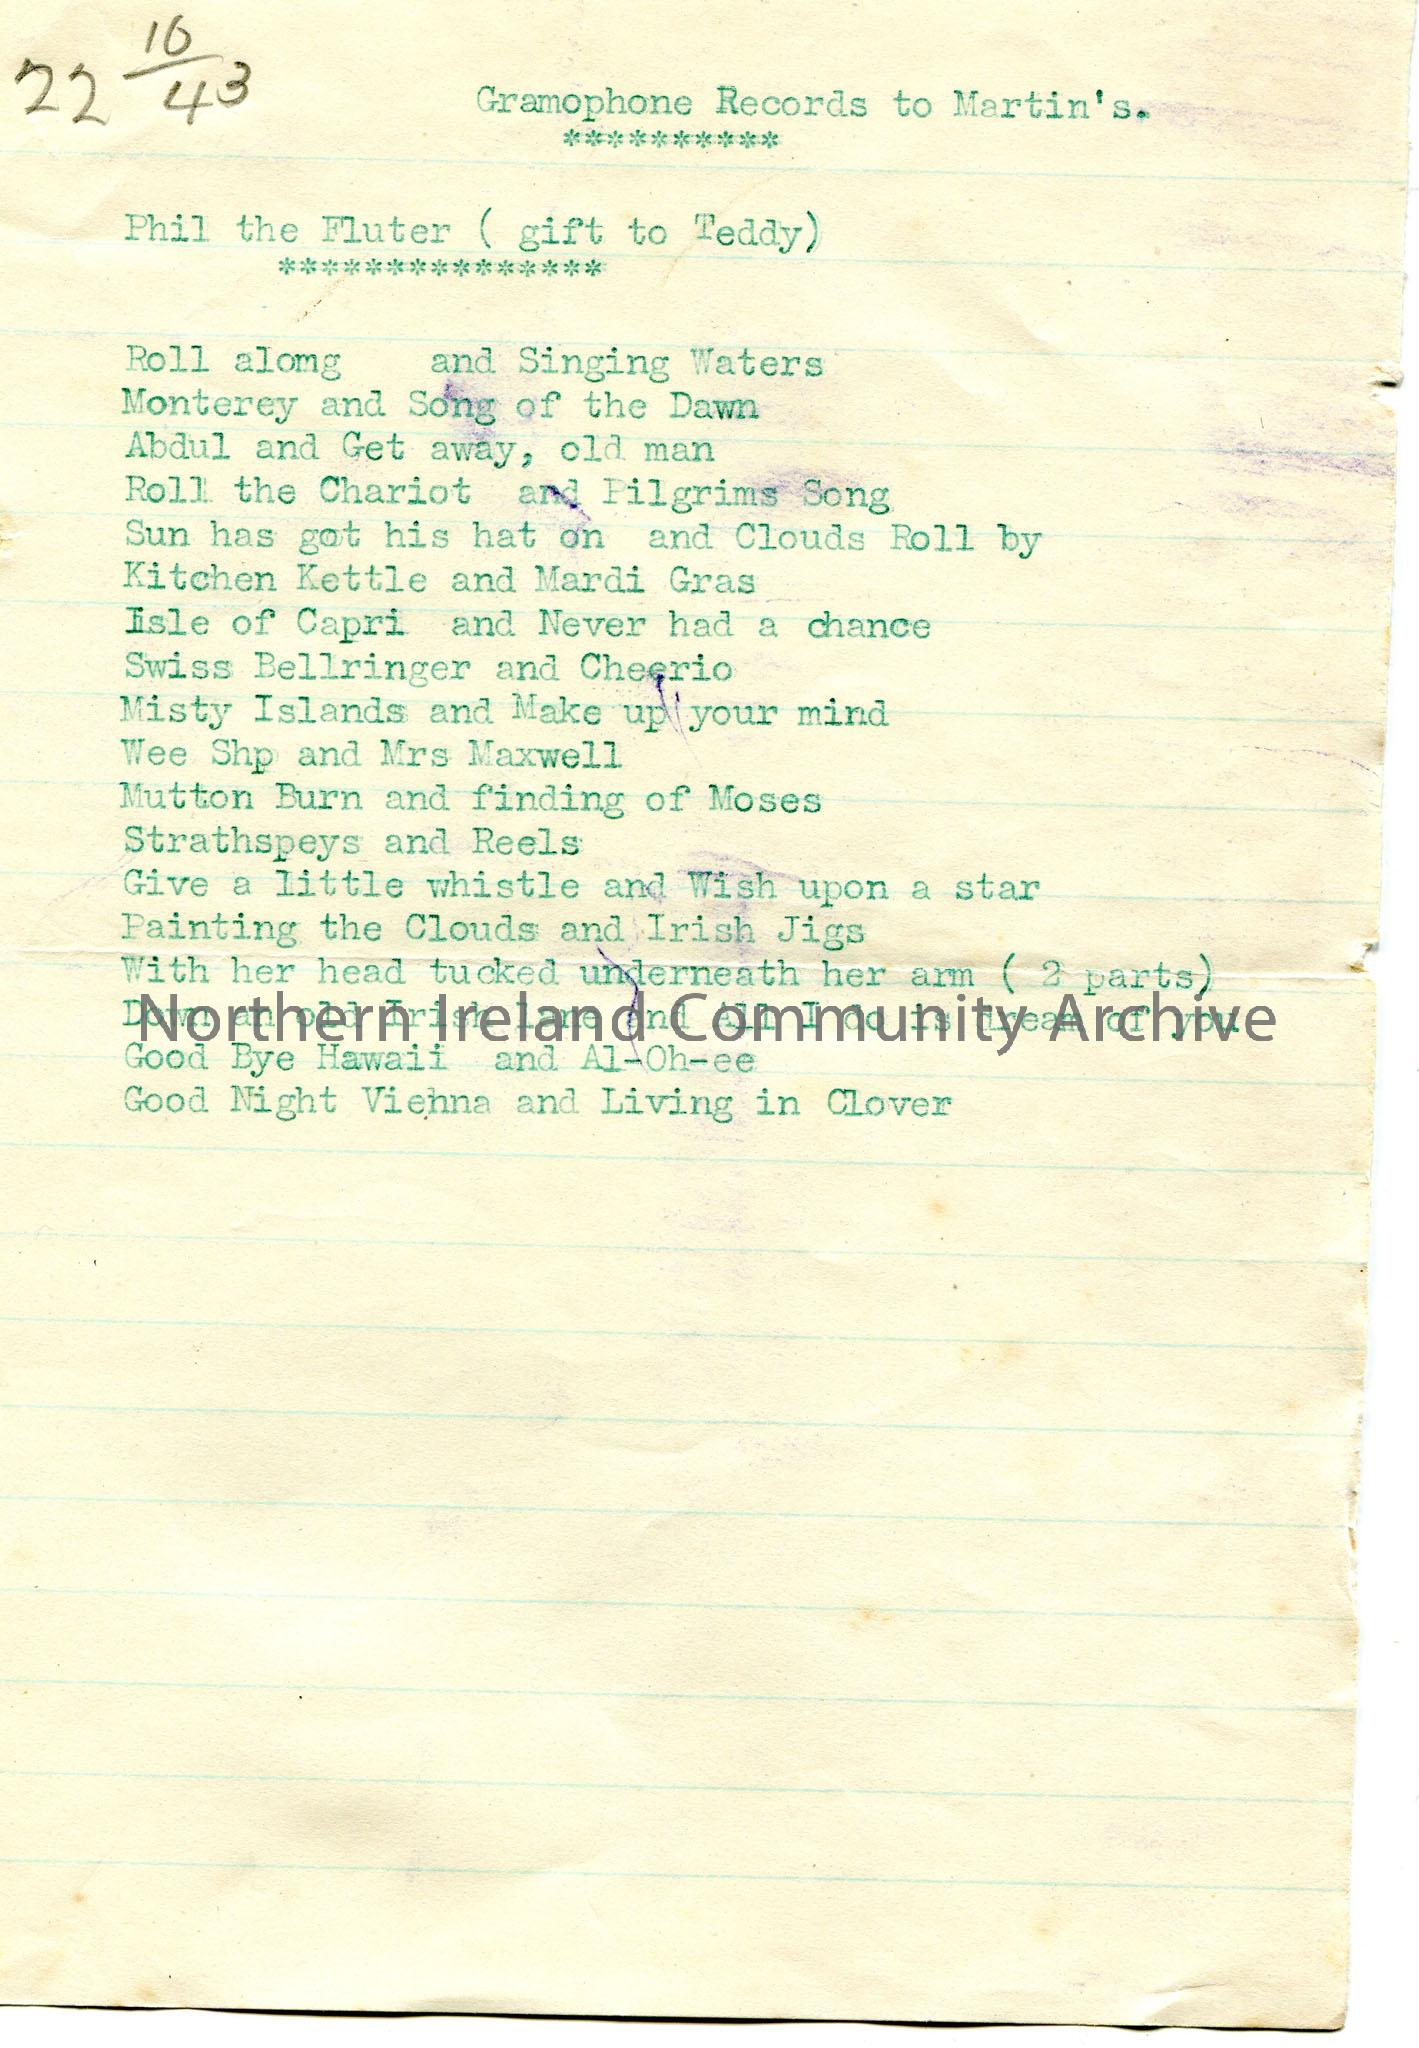 22 10/43
Gramophone Records to Martin's.
**********
Phil the Fluter ( gift to Teddy)
***************
Roll alomg and Singing Waters
Monterey and Song of the Dawn
Abdul and Get away, old man
Roll the Chariot and Pilgrims Song
Sun has got his hat on and Clouds Roll by
Kitchen Kettle and Mardi Gras
Isle of Capri and Never had a chance
Swiss Bellringer and Cheerio
Misty Islands and Make up your mind
Wee Shp and Mrs Maxwell
Mutton Burn and finding of Moses
Strathspeys and Reels
Give a little whistle and Wish upon a star
Painting the Clouds and Irish Jigs
With her head tucked underneath her arm ( 2 parts)
Down an old Irish lane and All I do is dream of you
Northern Ireland Community Archive
Good Bye Hawaii and Al-Oh-ee
Good Night Viehna and Living in Clover